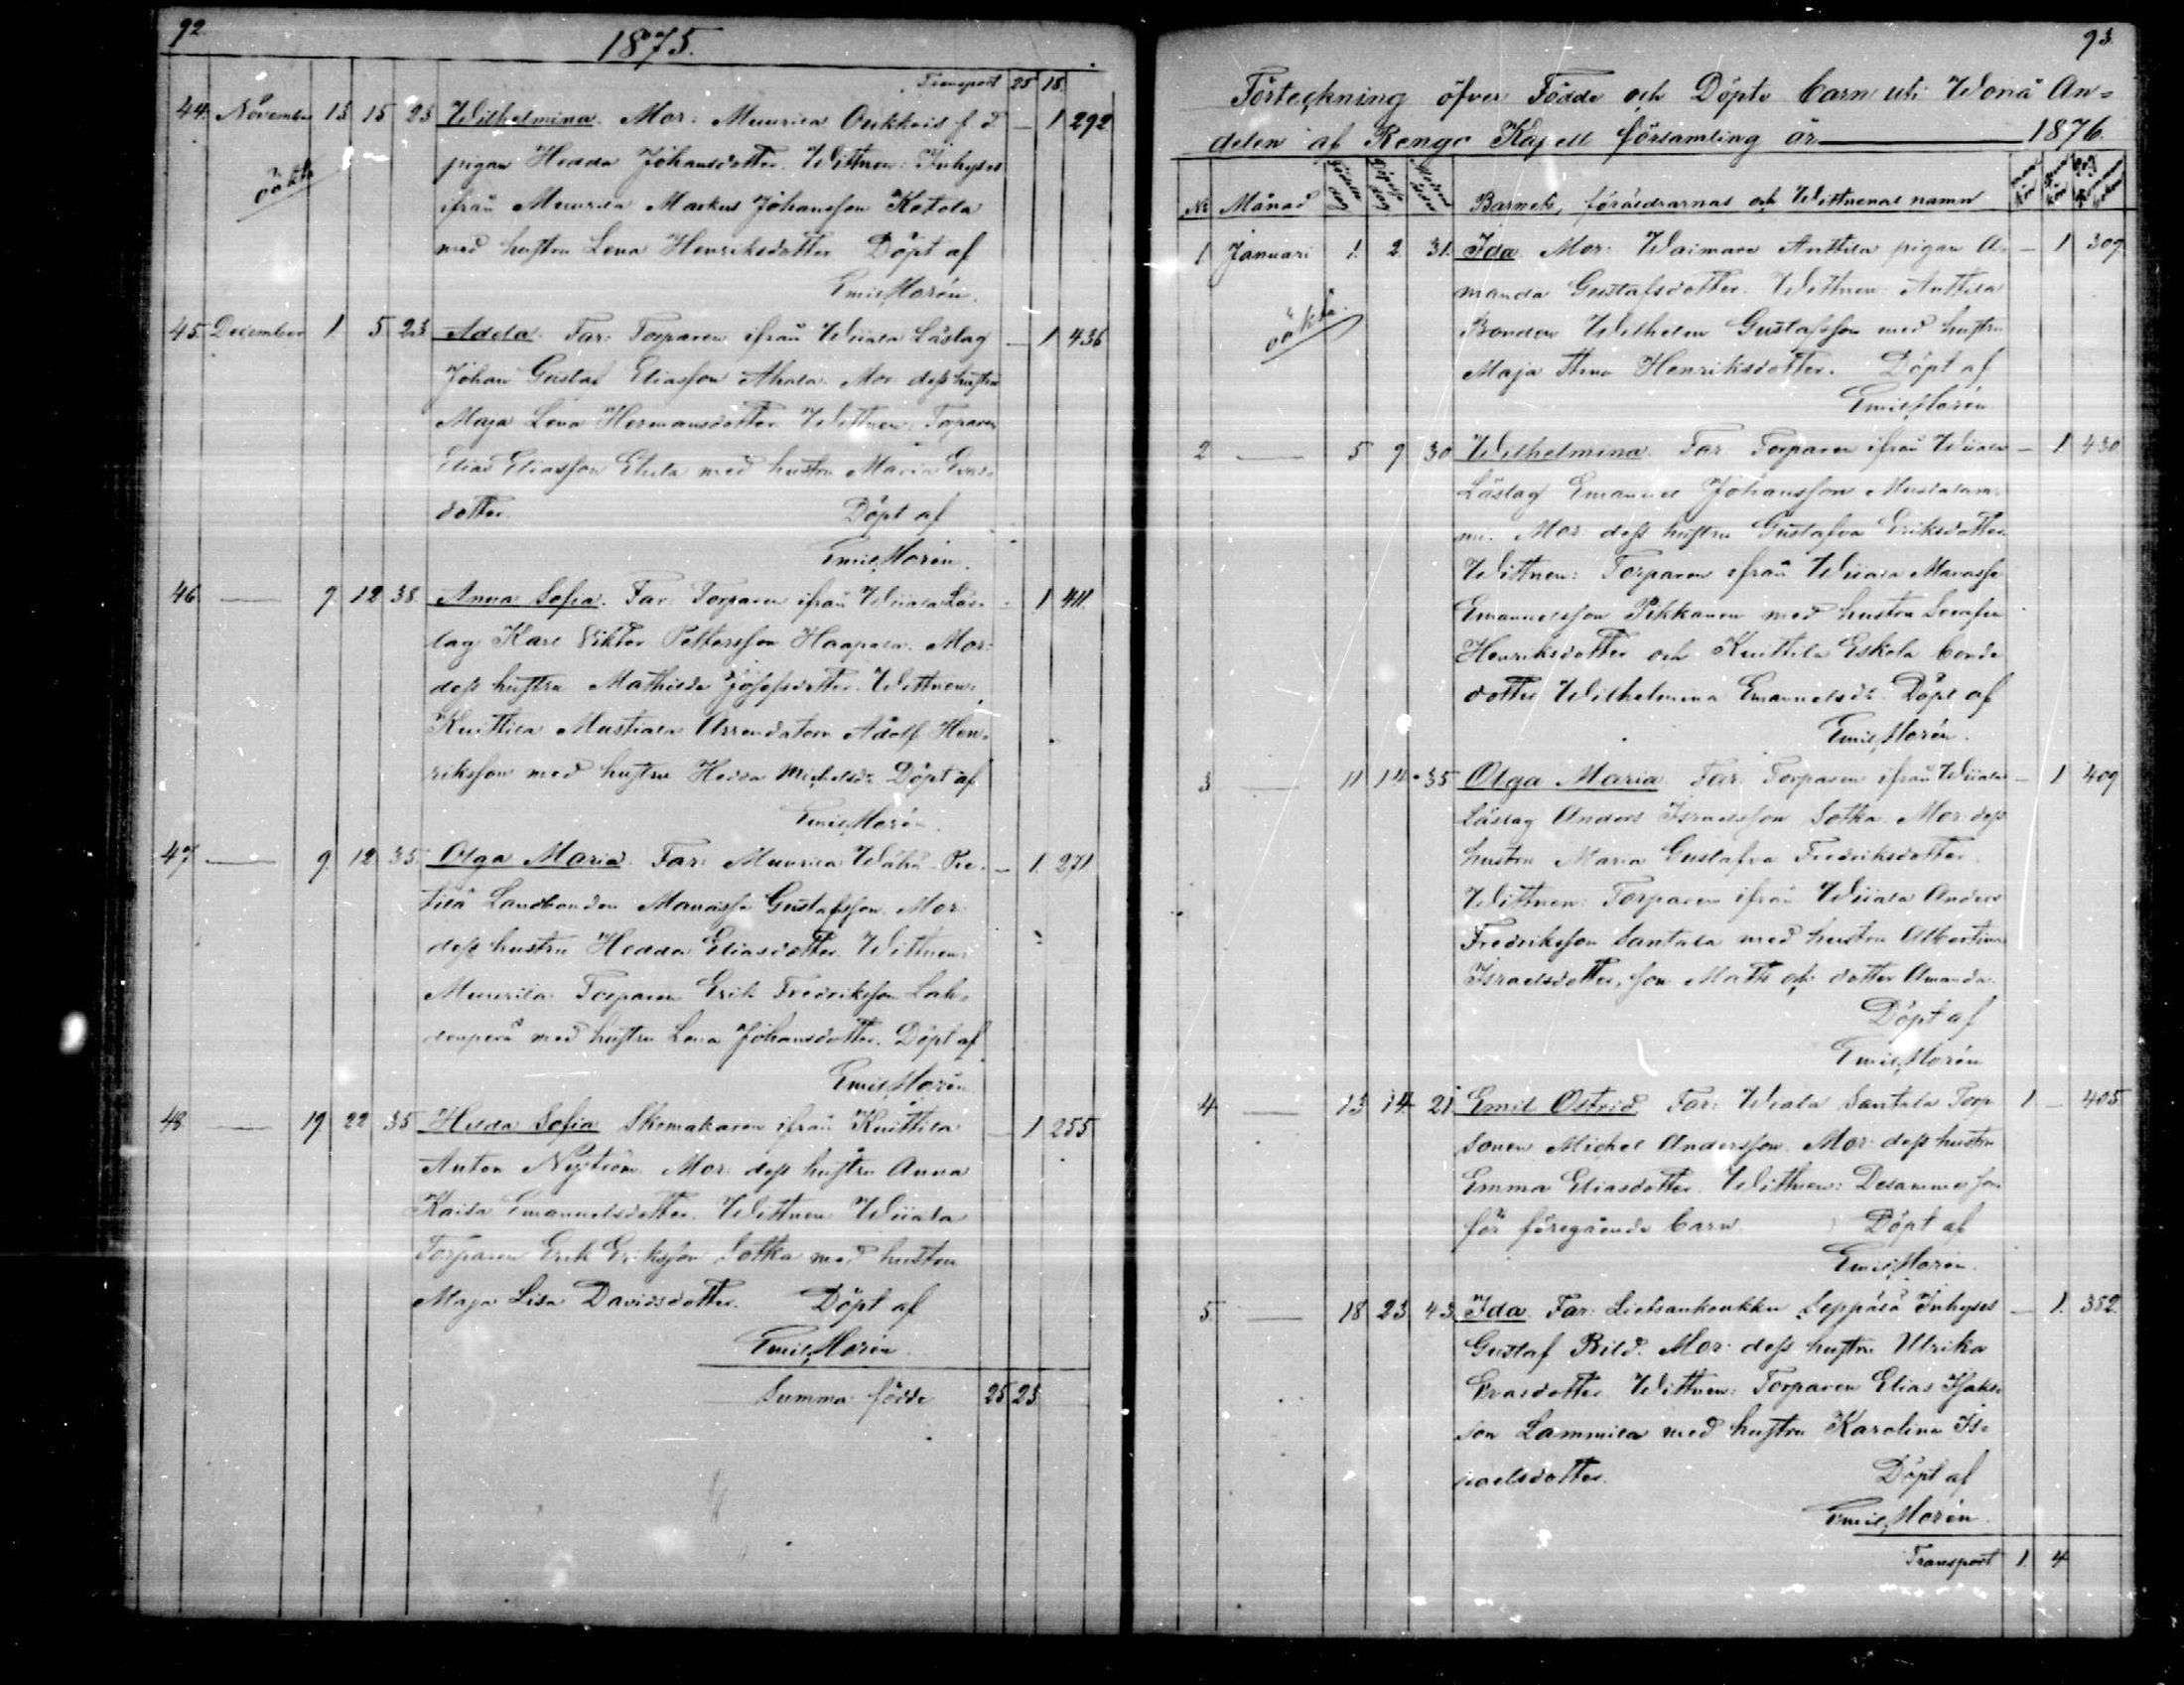 92.
1875.
Transport 25 18.
44. November 13 15 23 Wilhelmina. Mor: Muurila Oukkais f. d. — 1 292
oäkta
pigan Hedda Johansdotter. Wittnen: Inhyses
ifrån Muurila Markus Johansson Ketola
med hustru Lena Henriksdotter Döpt af
Emil Morén.
45. December 1. 5 23 Adela. Far: Torparen ifrån Wiiala Låslag — 1 436
Johan Gustaf Eliasson Ahola. Mor dess hustru
Maja Lena Hermansdotter. Wittnen: Torparen
Elias Eliasson Etula med hustru Maria Evas-
dotter. Döpt af
Emil Morén.
46 — 9. 12 38. Anna Sofia. Far: Torparen ifrån Wiiala Lås- — 1 411.
lag Karl Viktor Pettersson Haapala. Mor:
dess hustru Mathilda Josefsdotter. Wittnen:
Knittila Mustiala Arrendatorn Adolf Hen-
riksson med hustru Hedda Michelsdr. Döpt af
Emil Morén.
47 — 9. 12 35. Olga Maria. Far: Muurila Wähä-Pie- — 1. 271
tilä Landbonden Manasse Gustafsson. Mor:
dess hustru Hedda Eliasdotter. Wittnen:
Muurila Torparen Erik Fredriksson Lah-
denperä med hustru Lena Johansdotter. Döpt af
Emil Morén
48 — 19 22 35 Hilda Sofia Skomakaren ifrån Knittila — 1 255
Anton Nyström. Mor: dess hustru Anna
Kaisa Emanuelsdotter. Wittnen Wiiala
Torparen Erik Eriksson Sotka med hustru
Maja Lisa Davidsdotter. Döpt af
Emil Morén.
Summa födde 25 23.
93.
Förteckning öfver Födde och Döpte barn uti Wonå An-
delen af Rengo Kapell församling år 1876.
No Månad Födelse dag Döpelse dag Barnets, föräldrarnas och Wittnenas namn
1 Januari 1. 2. 31. Ida. Mor: Waimare Anttila pigan A- — 1 309.
oäkta.
manda Gustafsdotter. Wittnen: Anttila
Bonden Wilhelm Gustafsson med hustru
Maja Stina Henriksdotter. Döpt af
Emil Morén
2 — 5 9 30 Wilhelmina. Far Torparen ifrån Wiiala — 1 430
Låslag Emanuel Johansson Mustalam-
mi. Mor: dess hustru Gustafva Eriksdotter
Wittnen: Torparen ifrån Wiiala Manasse
Emanuelsson Pikkanen med hustru Serafia
Henriksdotter och Knittila Eskola bonde
dotter Wilhelmina Emanuelsdr. Döpt af
Emil Morén.
3 — 11 14 35 Olga Maria. Far: Torparen ifrån Wiiala — 1 409
Låslag Anders Israelsson Sotka. Mor: dess
hustru Maria Gustafva Fredriksdotter.
Wittnen: Torparen ifrån Wiiala Anders
Fredriksson Santala med hustru Albertina
Israelsdotter, son Matts och dotter Amanda.
Döpt af
Emil Morén
4 — 13 14 21 Emil Ostrid Far: Wiala Santala Torp 1 — 405
sonen Michel Andersson. Mor: dess hustru
Emma Eliasdotter. Wittnen: Desamme som
för föregående barn. Döpt af
Emil Morén.
5 — 18 23 43. Ida. Far: Lietsankoukku Seppälä Inhyses — 1. 352.
Gustaf Bild. Mor: dess hustru Ulrika
Evasdotter. Wittnen: Torparen Elias Isaks-
son Lammila med hustru Karolina Is-
raelsdotter. Döpt af
Emil Morén.
Transport 1. 4